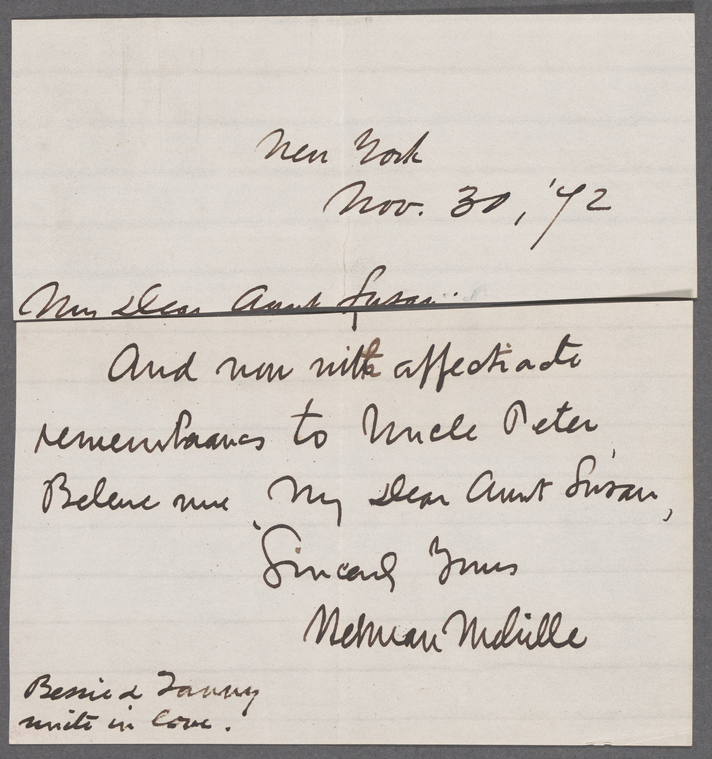 New York
Nov. 30, '72
My Dear Aunt Susan:
And now with affectionate
remembrances to Uncle Peter
Believe me, My Dear Aunt Susan,
Sincerely Yours
Herman Melville
Bessie & Fanny
unite in love.